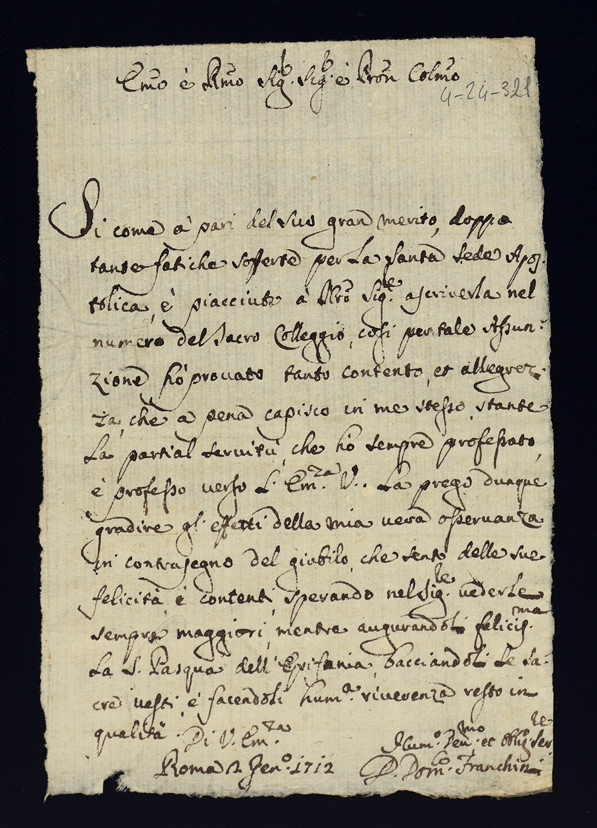 Emo è Rmo Sigr. Sigr. è Pron Colmo
4-24-321
Si come à pari del suo grand merito, doppo
tante fatiche sofferte per la Santa Sede Apos:
tolica, è piacciuto a Nro Sigre ascriverla nel
numero del Sacro Colleggio, così per tale Assun:
zione hò provato tanto contento, et allegrez-
za, che a pena capisco in me stesso, stante
la partial servitù, che hò sempre professato,
è professo verso l'Emza V.. La prego dunque
gradire gl'effetti della mia vera osservanza
in contrasegno del giubilo, che sento delle sue
felicità, è contenti, sperando nel Sigre vederle
sempre maggiori, mentre augurandoli felicisma
la S. Pasqua dell'Epifania, bacciandoli le sa-
cre vesti, è facendoli hume riverenza resto in
qualità Di V. Emza
Humo Devmo et Obligo Ser
Roma 2 Genro 1712
D. Domco Franchini